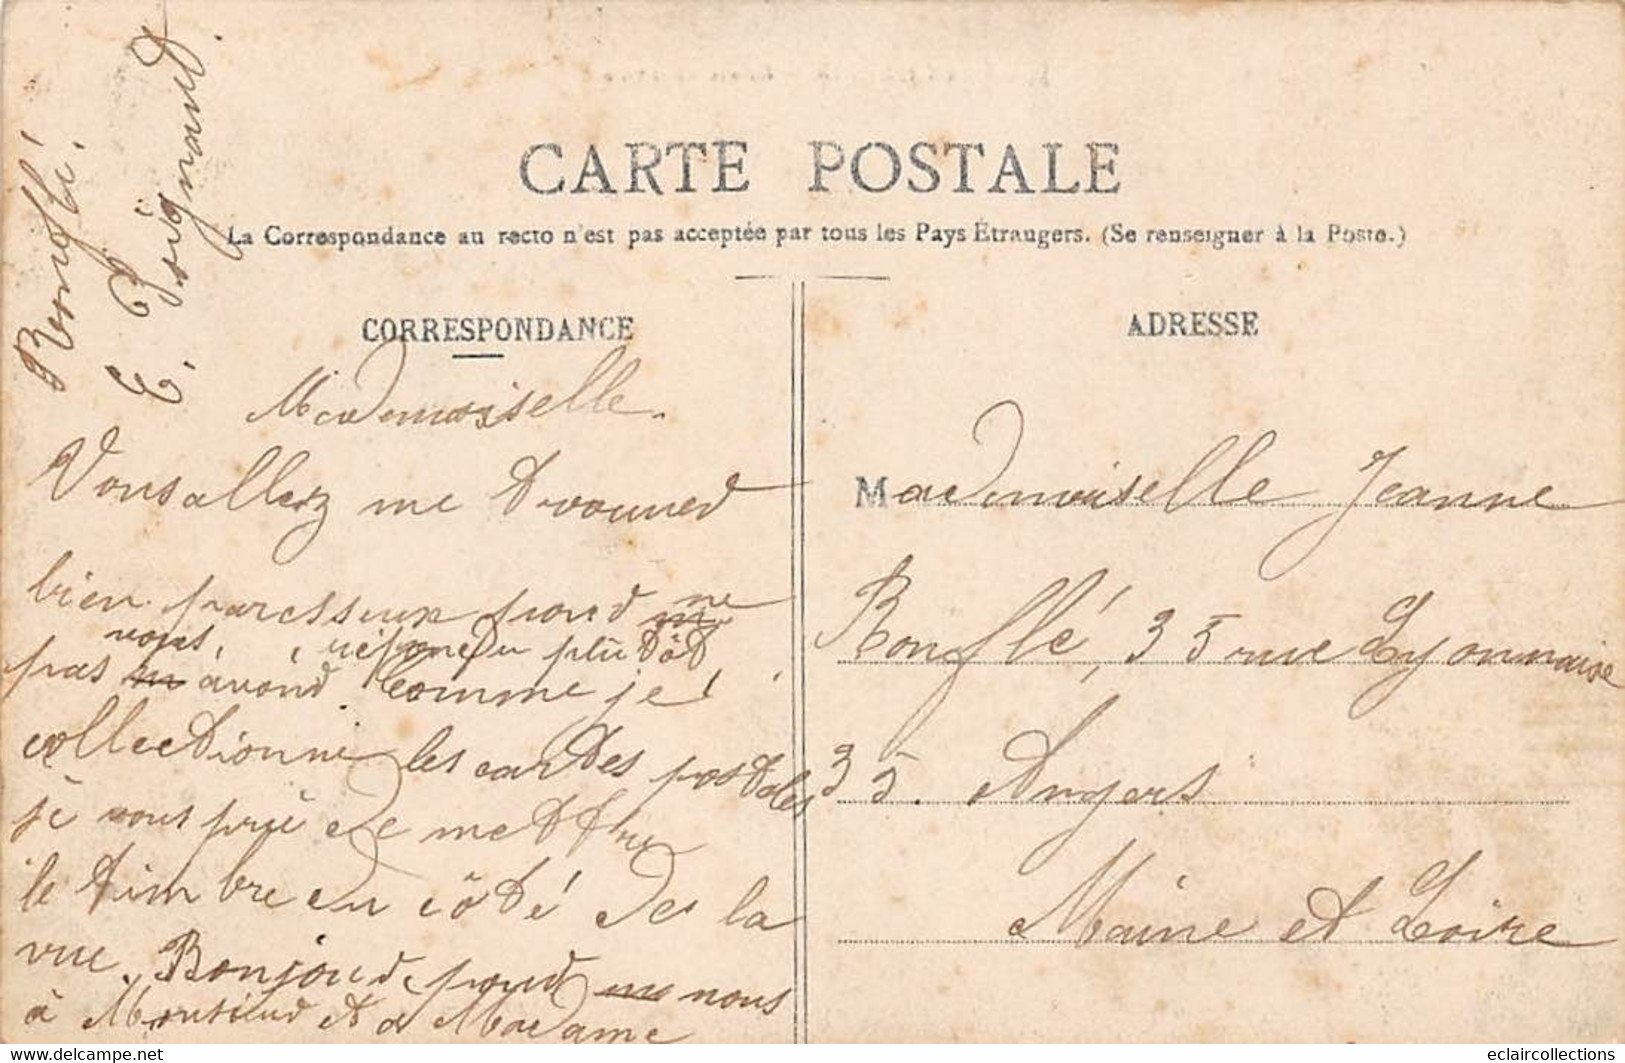 CARTE POSTALE
La Correspondance au recto n'est pas acceptée par tous les Pays Étrangers. (Se renseigner à la Poste.)
CORRESPONDANCE
Mademoiselle.
Vous allez me trouver
bien paresseux pour ne
pas vous avoir répondu plutôt
Comme je
collectionne les cartes postales
je vous prie de mettre
le timbre du côté de la
vue. Bonjour pour nous
à Monsieur et a Madame
Ronflé.
E. Poignand.
ADRESSE
Mademoiselle Jeanne
Ronflé, 35 rue Lyonnaise
35. Angers
Maine et Loire
eclaircollections
www.delcampe.net